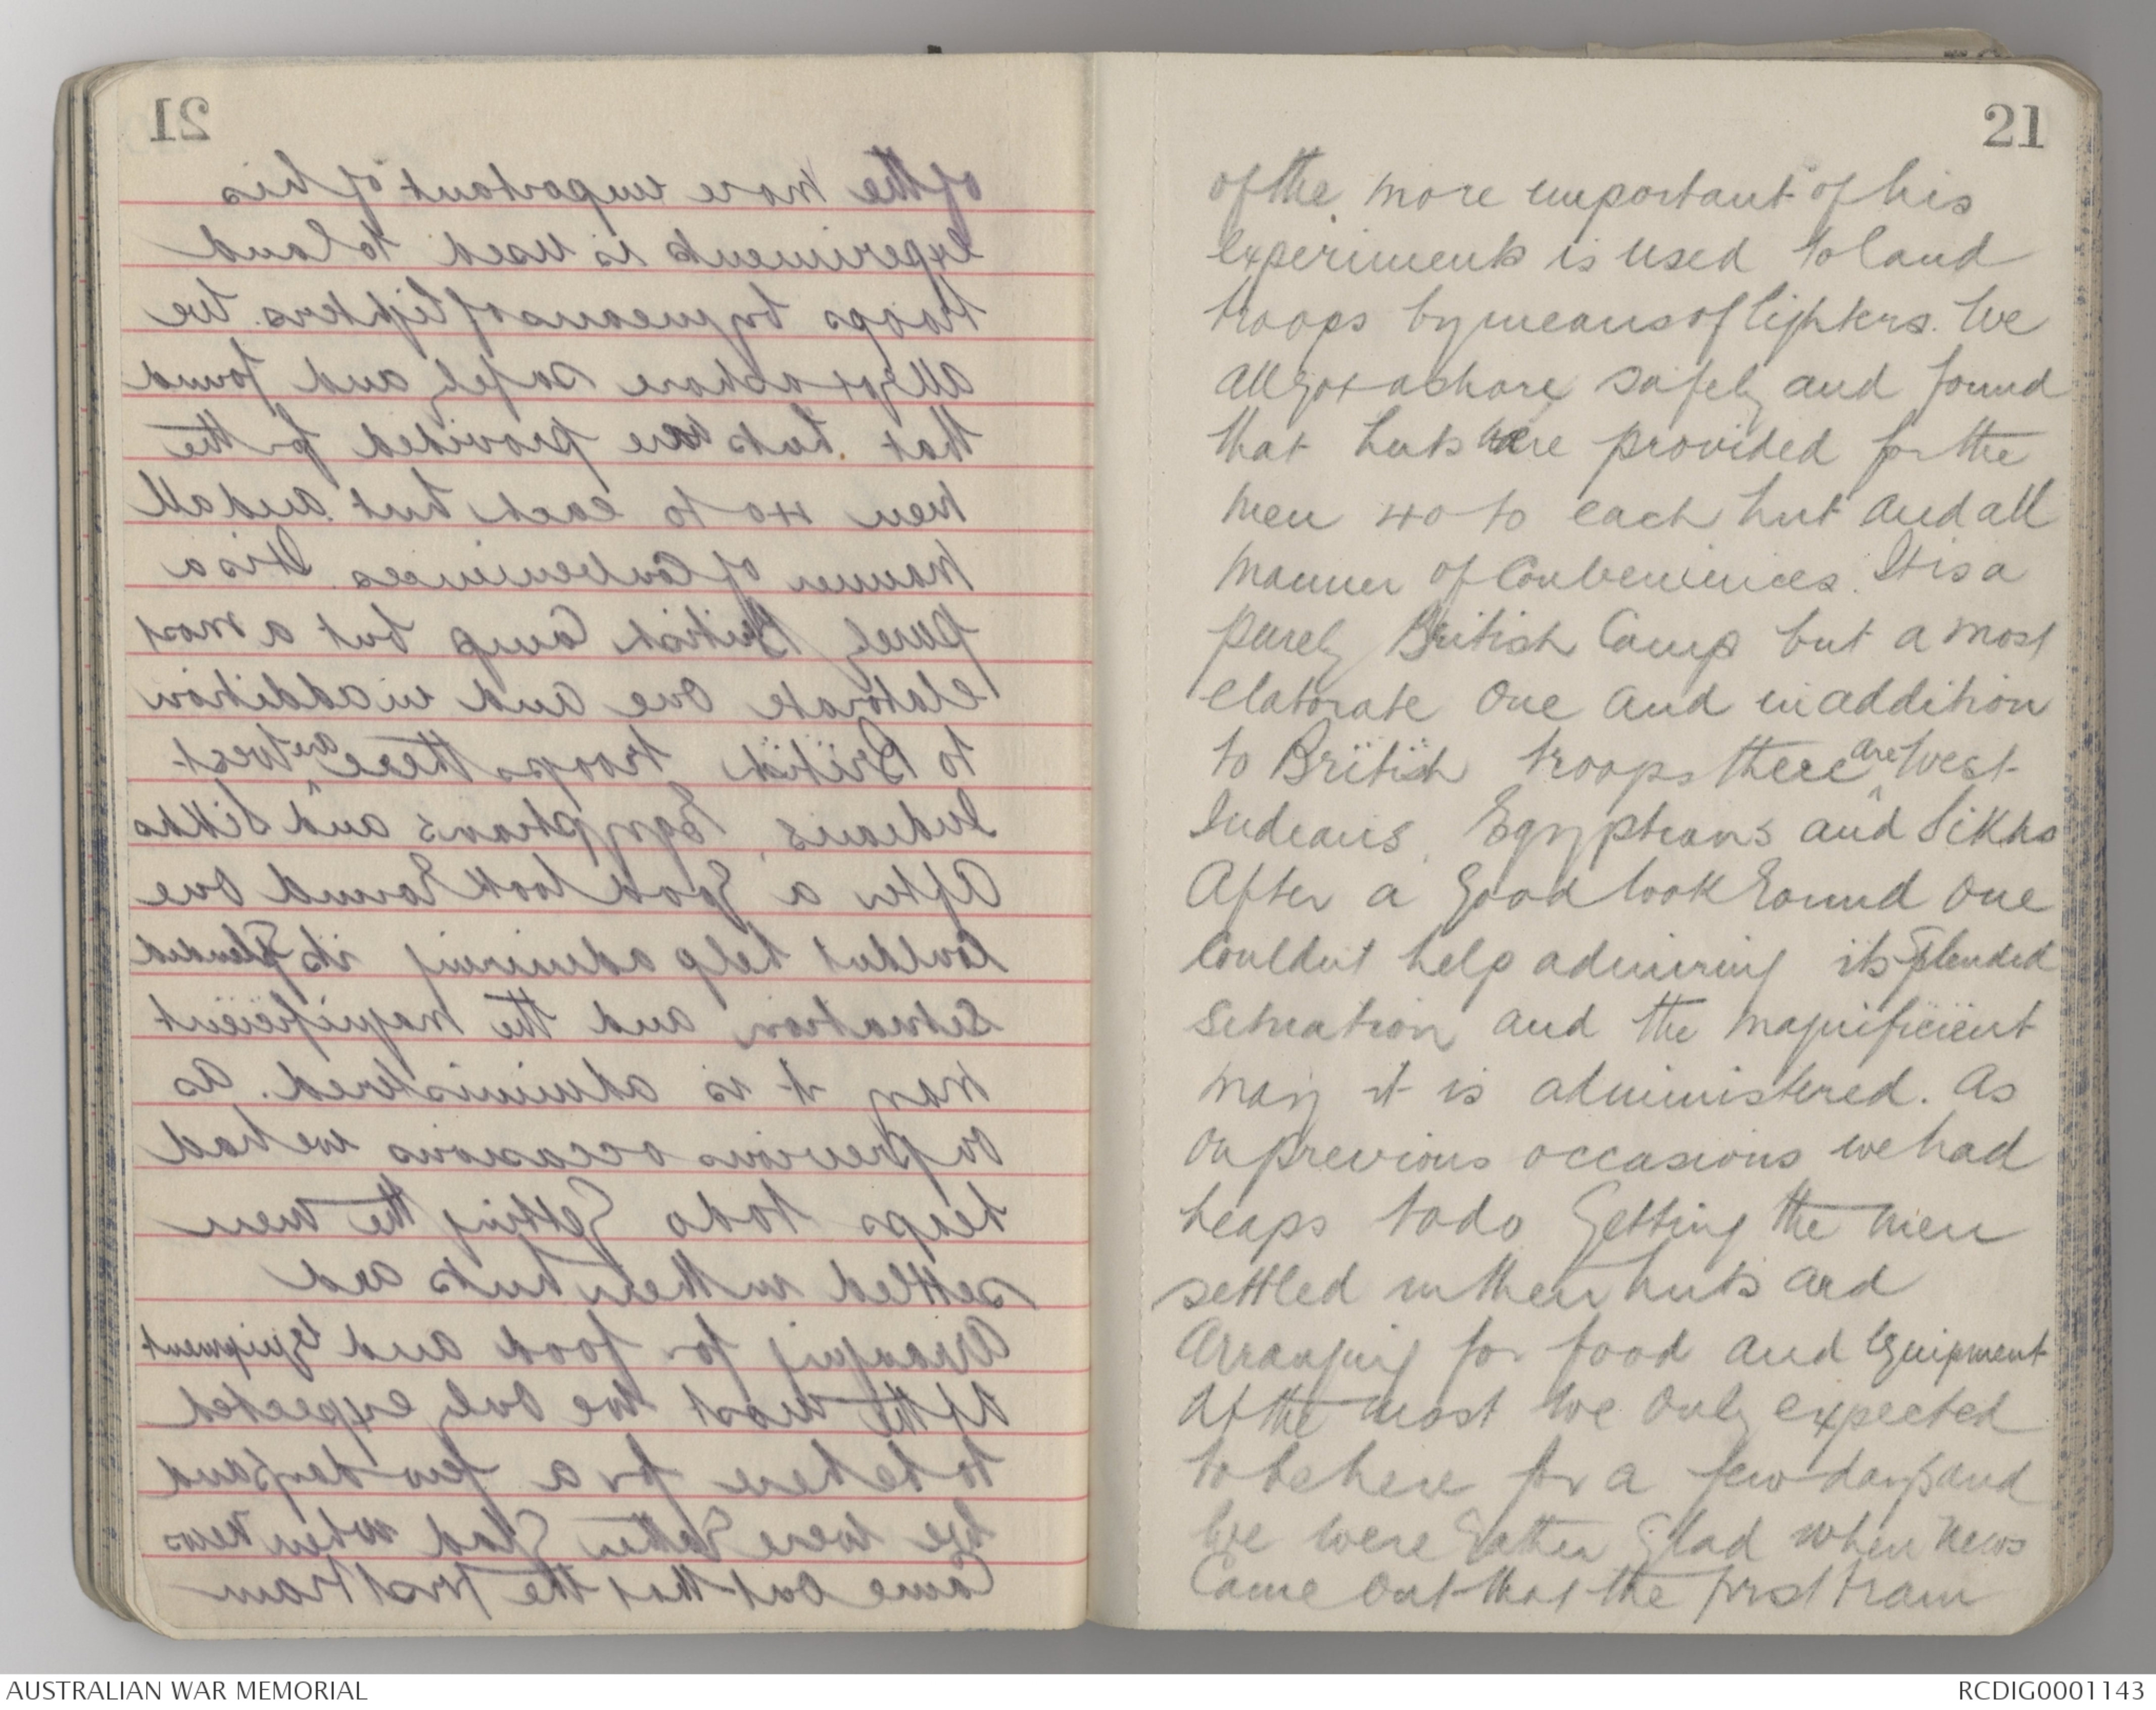 21
of the more important of his
experiments is used to land
troops by means of lighters. We
all got ashore safely and found
that huts were provided for the
men 40 to each hut and all
manner of Conveniences. It is a
purely British Camp but a most
elaborate One and in addition
to British troops there are West
Indians, Egyptians and Sikhs
After a good look Round One
Couldnt help admiring its Splended
Setuation and the magnificient
way it is administered. As
On previous occasions we had
heaps to do Getting the men
settled in their huts and
Arranging for food and Equipment
At the most We Only expected
to be here for a few days and
We were Rather Glad when News
Came Out that the first train
AUSTRALIAN WAR MEMORIAL
RCDIG0001143